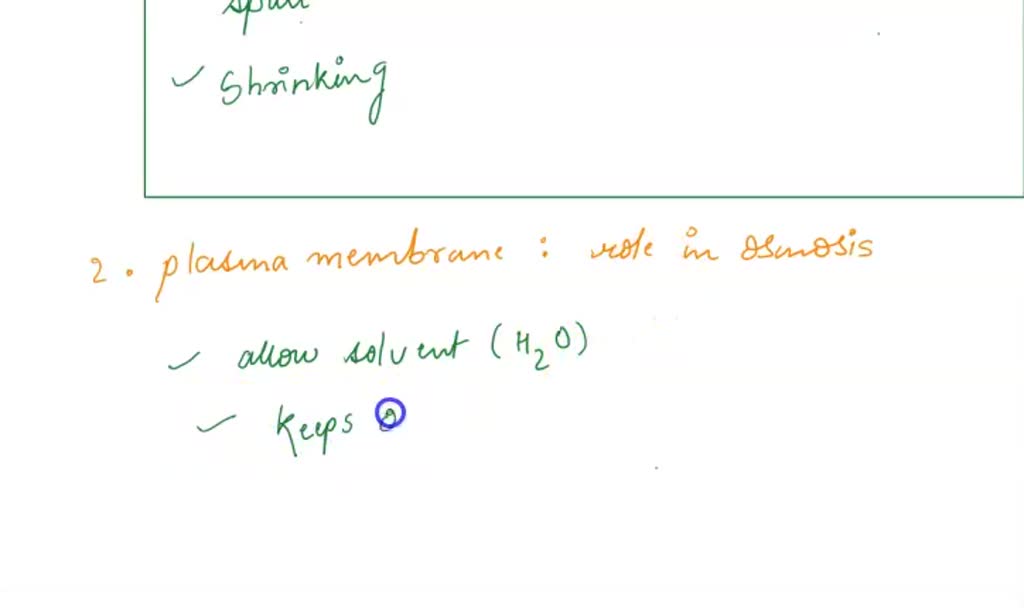 ✓ Shrinking
2. plasma membrane : role in osmosis
✓ allow solvent (H₂O)
✓ Keeps